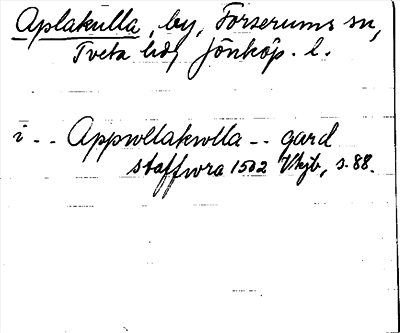 Aplakulla, by, Forserums sn,
Tveta hd, Jönköp. l.
i - - Appwllakwlla - - gard
staffwra 1502 Vkjb, s. 88.